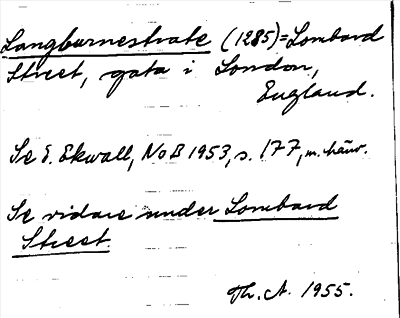 Langburnestrate (1285) = Lombard
Street, gata i London,
England.
Se E. Ekwall, NoB 1953, s. 177, m. hänv.
Se vidare under Lombard
Street.
Th. A. 1955.